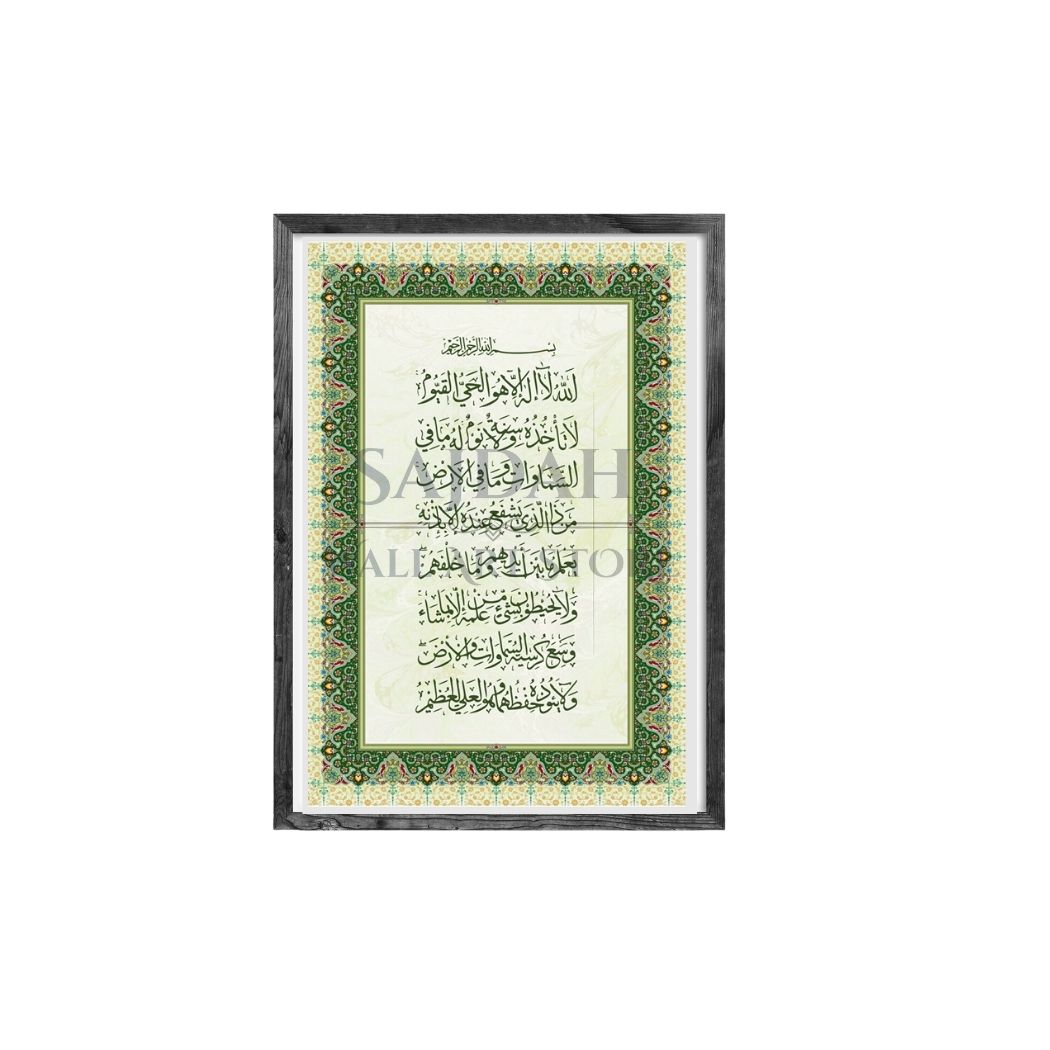 بسم الله الرحمن الرحيم
اَللّٰهُ لَا إِلٰهَ إِلَّا هُوَ الْحَيُّ الْقَيُّومُ
لَا تَأْخُذُهُ سِنَةٌ وَلَا نَوْمٌ لَهُ مَا فِي
السَّمَاوَاتِ وَمَا فِي الْأَرْضِ
مَنْ ذَا الَّذِي يَشْفَعُ عِنْدَهُ إِلَّا بِإِذْنِهِ
يَعْلَمُ مَا بَيْنَ أَيْدِيهِمْ وَمَا خَلْفَهُمْ
وَلَا يُحِيطُونَ بِشَيْءٍ مِنْ عِلْمِهِ إِلَّا بِمَا شَاءَ
وَسِعَ كُرْسِيُّهُ السَّمَاوَاتِ وَالْأَرْضَ
وَلَا يَئُودُهُ حِفْظُهُمَا وَهُوَ الْعَلِيُّ الْعَظِيمُ
SAJDAH
ALL ART STO